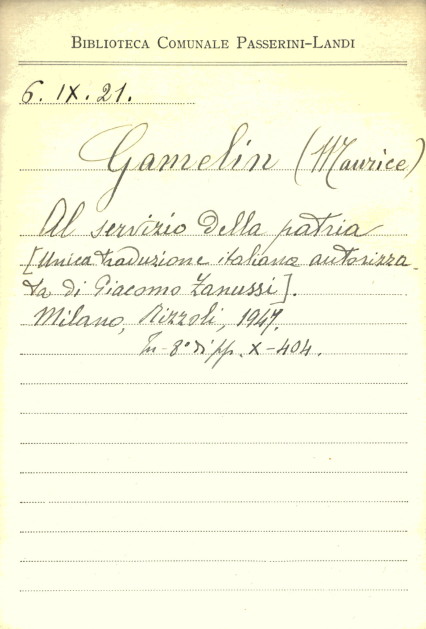 BIBLIOTECA COMUNALE PASSERINI-LANDI
6. IX. 21.
Gamelin (Maurice)
Al servizio della patria
[Unica traduzione italiana autorizza-
ta di Giacomo Zanussi].
Milano, Rizzoli, 1947.
In-8° di pp. X-404.